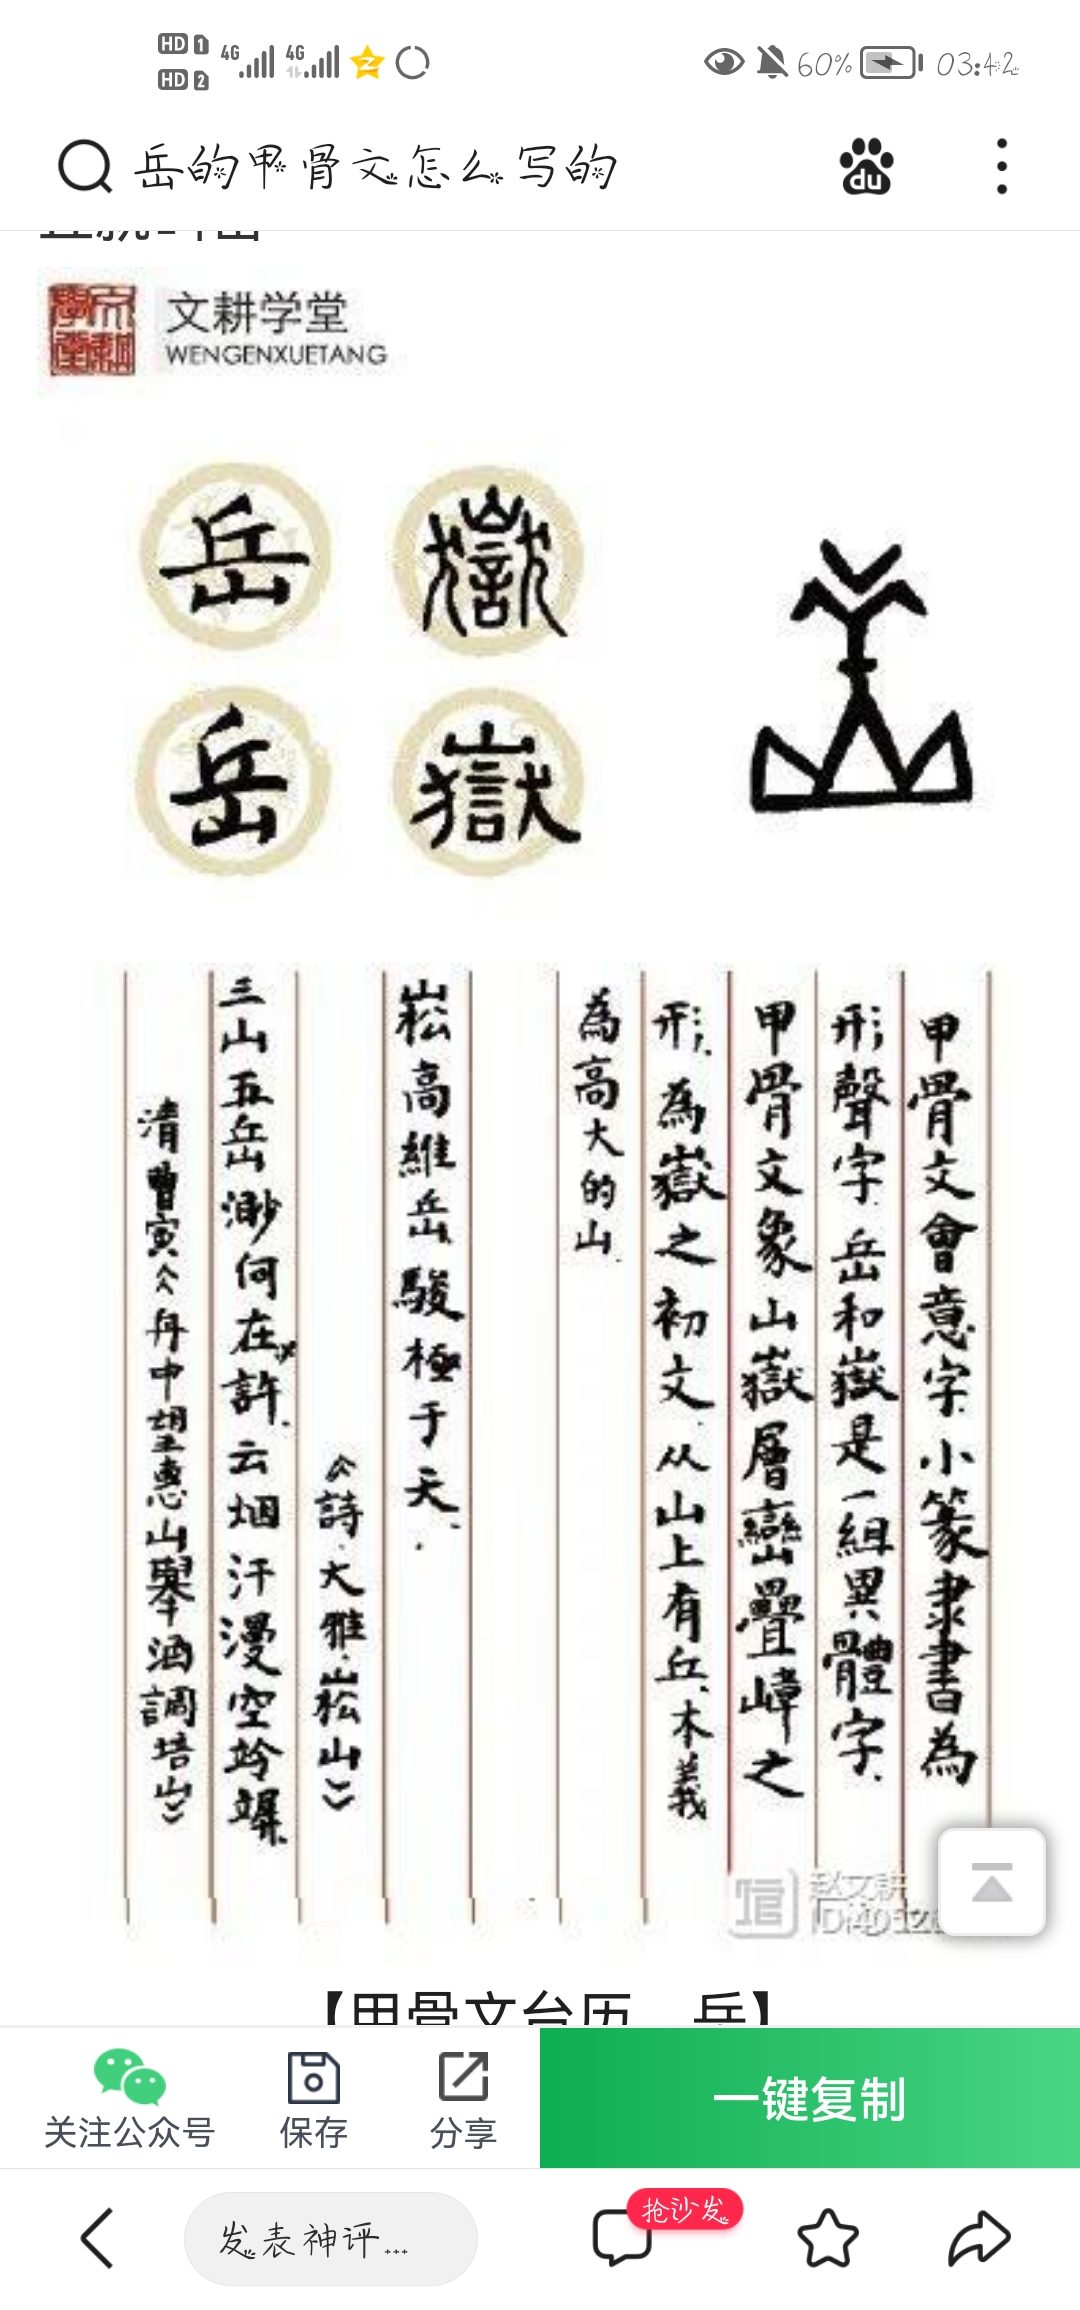 HD 1
HD 2
4G
4G
60%
03:42
岳的甲骨文怎么写的
du
文耕学堂
WENGENXUETANG
岳
嶽
岳
嶽
甲骨文會意字.小篆隶書為
形聲字.岳和嶽是一組異體字.
甲骨文象山嶽層巒疊嶂之
形.為嶽之初文.从山上有丘.本義
為高大的山.
崧高維岳駿極于天.
《詩.大雅.崧山》
三山五岳渺何在許.云烟汗漫空竛竮.
清曹寅《舟中望惠山舉酒調培山》
赵文耕
【甲骨文台历 岳】
关注公众号
保存
分享
一键复制
发表神评...
抢沙发